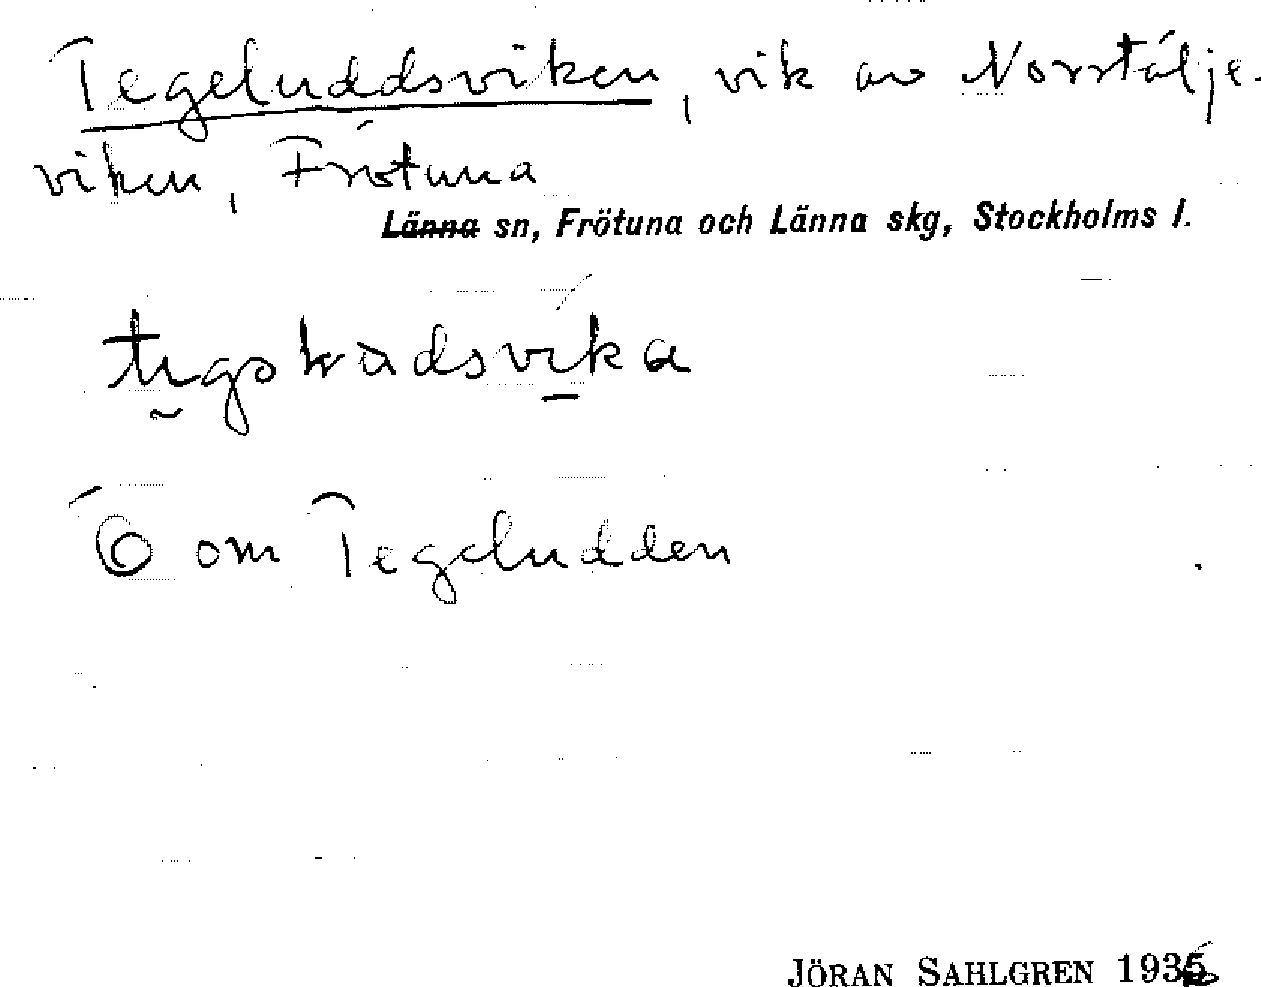 Tegeluddsviken, vik av Norrtälje-
viken, Frötuna
Länna sn, Frötuna och Länna skg, Stockholms l.
Ö om Tegeludden
JÖRAN SAHLGREN 1936